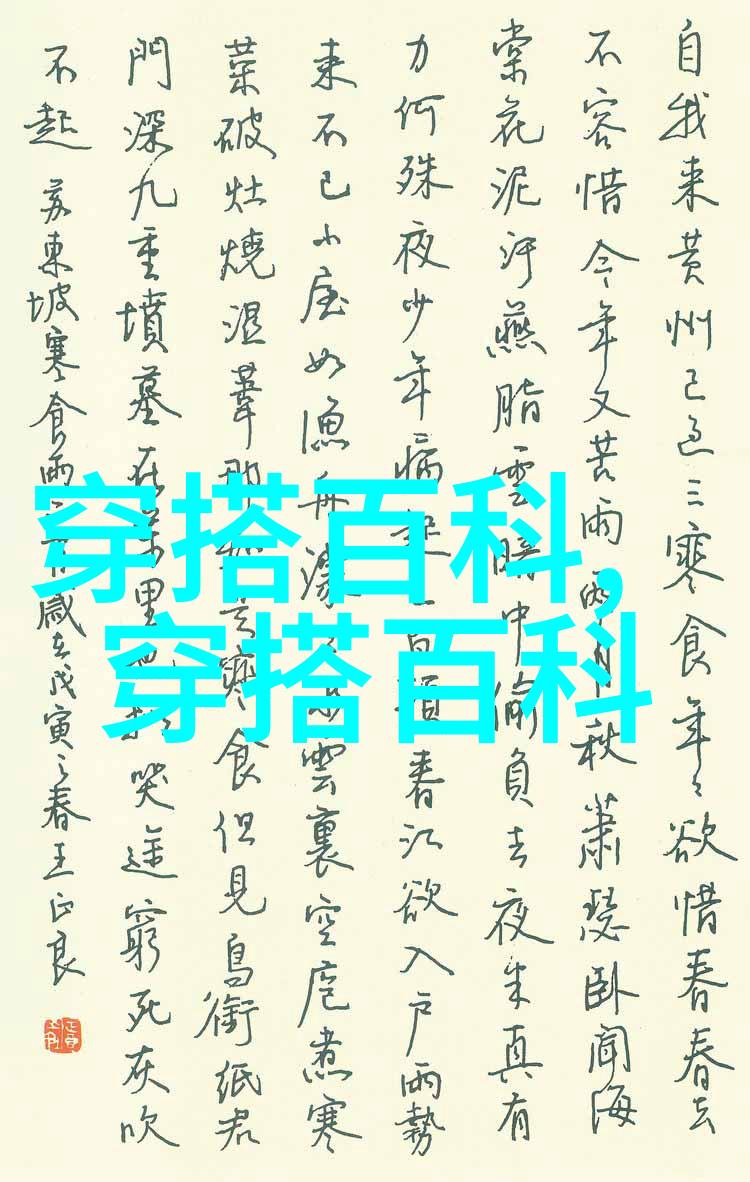 自我来黄州已过三寒食年々欲惜春春去
不容惜今年又苦雨兩月秋蕭瑟卧闻海
棠花泥汙燕脂雪暗中偷負去夜半真有
力何殊夜少年病起春江欲入户雨勢
来不已小屋如渔舟濛雲裏空庖煮寒
菜破灶燒湿葦那寒食但見烏銜纸君
門深九重墳墓在萬里哭途窮死灰吹
不起 苏東坡寒食雨二首歲在戊寅之春王正良
穿搭百科,
穿搭百科